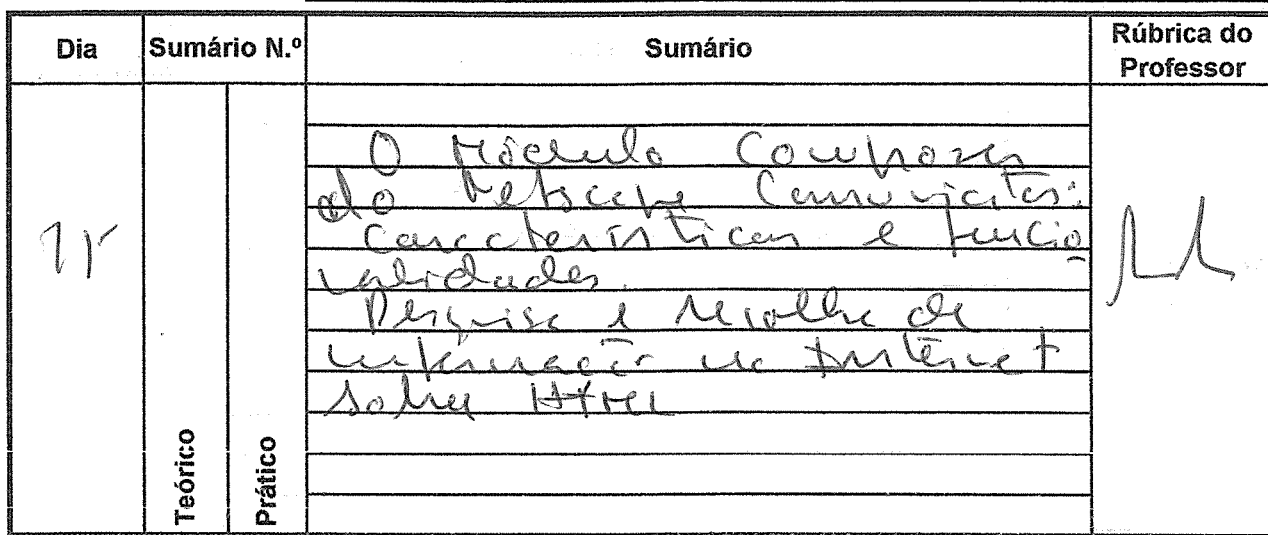 Dia Sumário N.º Sumário Rúbrica do Professor
O Módulo Composer
do Netscape Comunicator:
características e funcio
nalidades.
Pesquisa e recolha de
informação na Internet
sobre HTML
Teórico
Prático